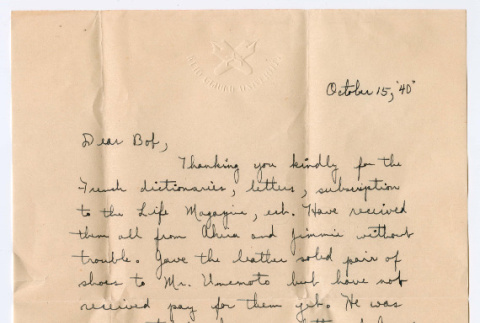 October 15, "40"
Dear Bob,
Thanking you kindly for the
French dictionaries, letters, subscription
to the Life Magazine, ect. Have received
them all from and Jimmie without
trouble. Gave the leather soled pair of
shoes to Mr. Umemoto but have not
received pay for them yet. He was